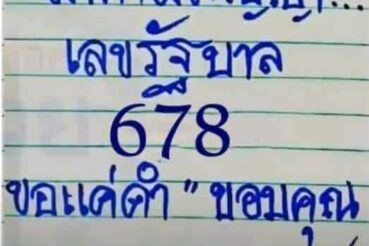 เลขรัฐบาล
678
ขอแค่คำ " ขอบคุณ